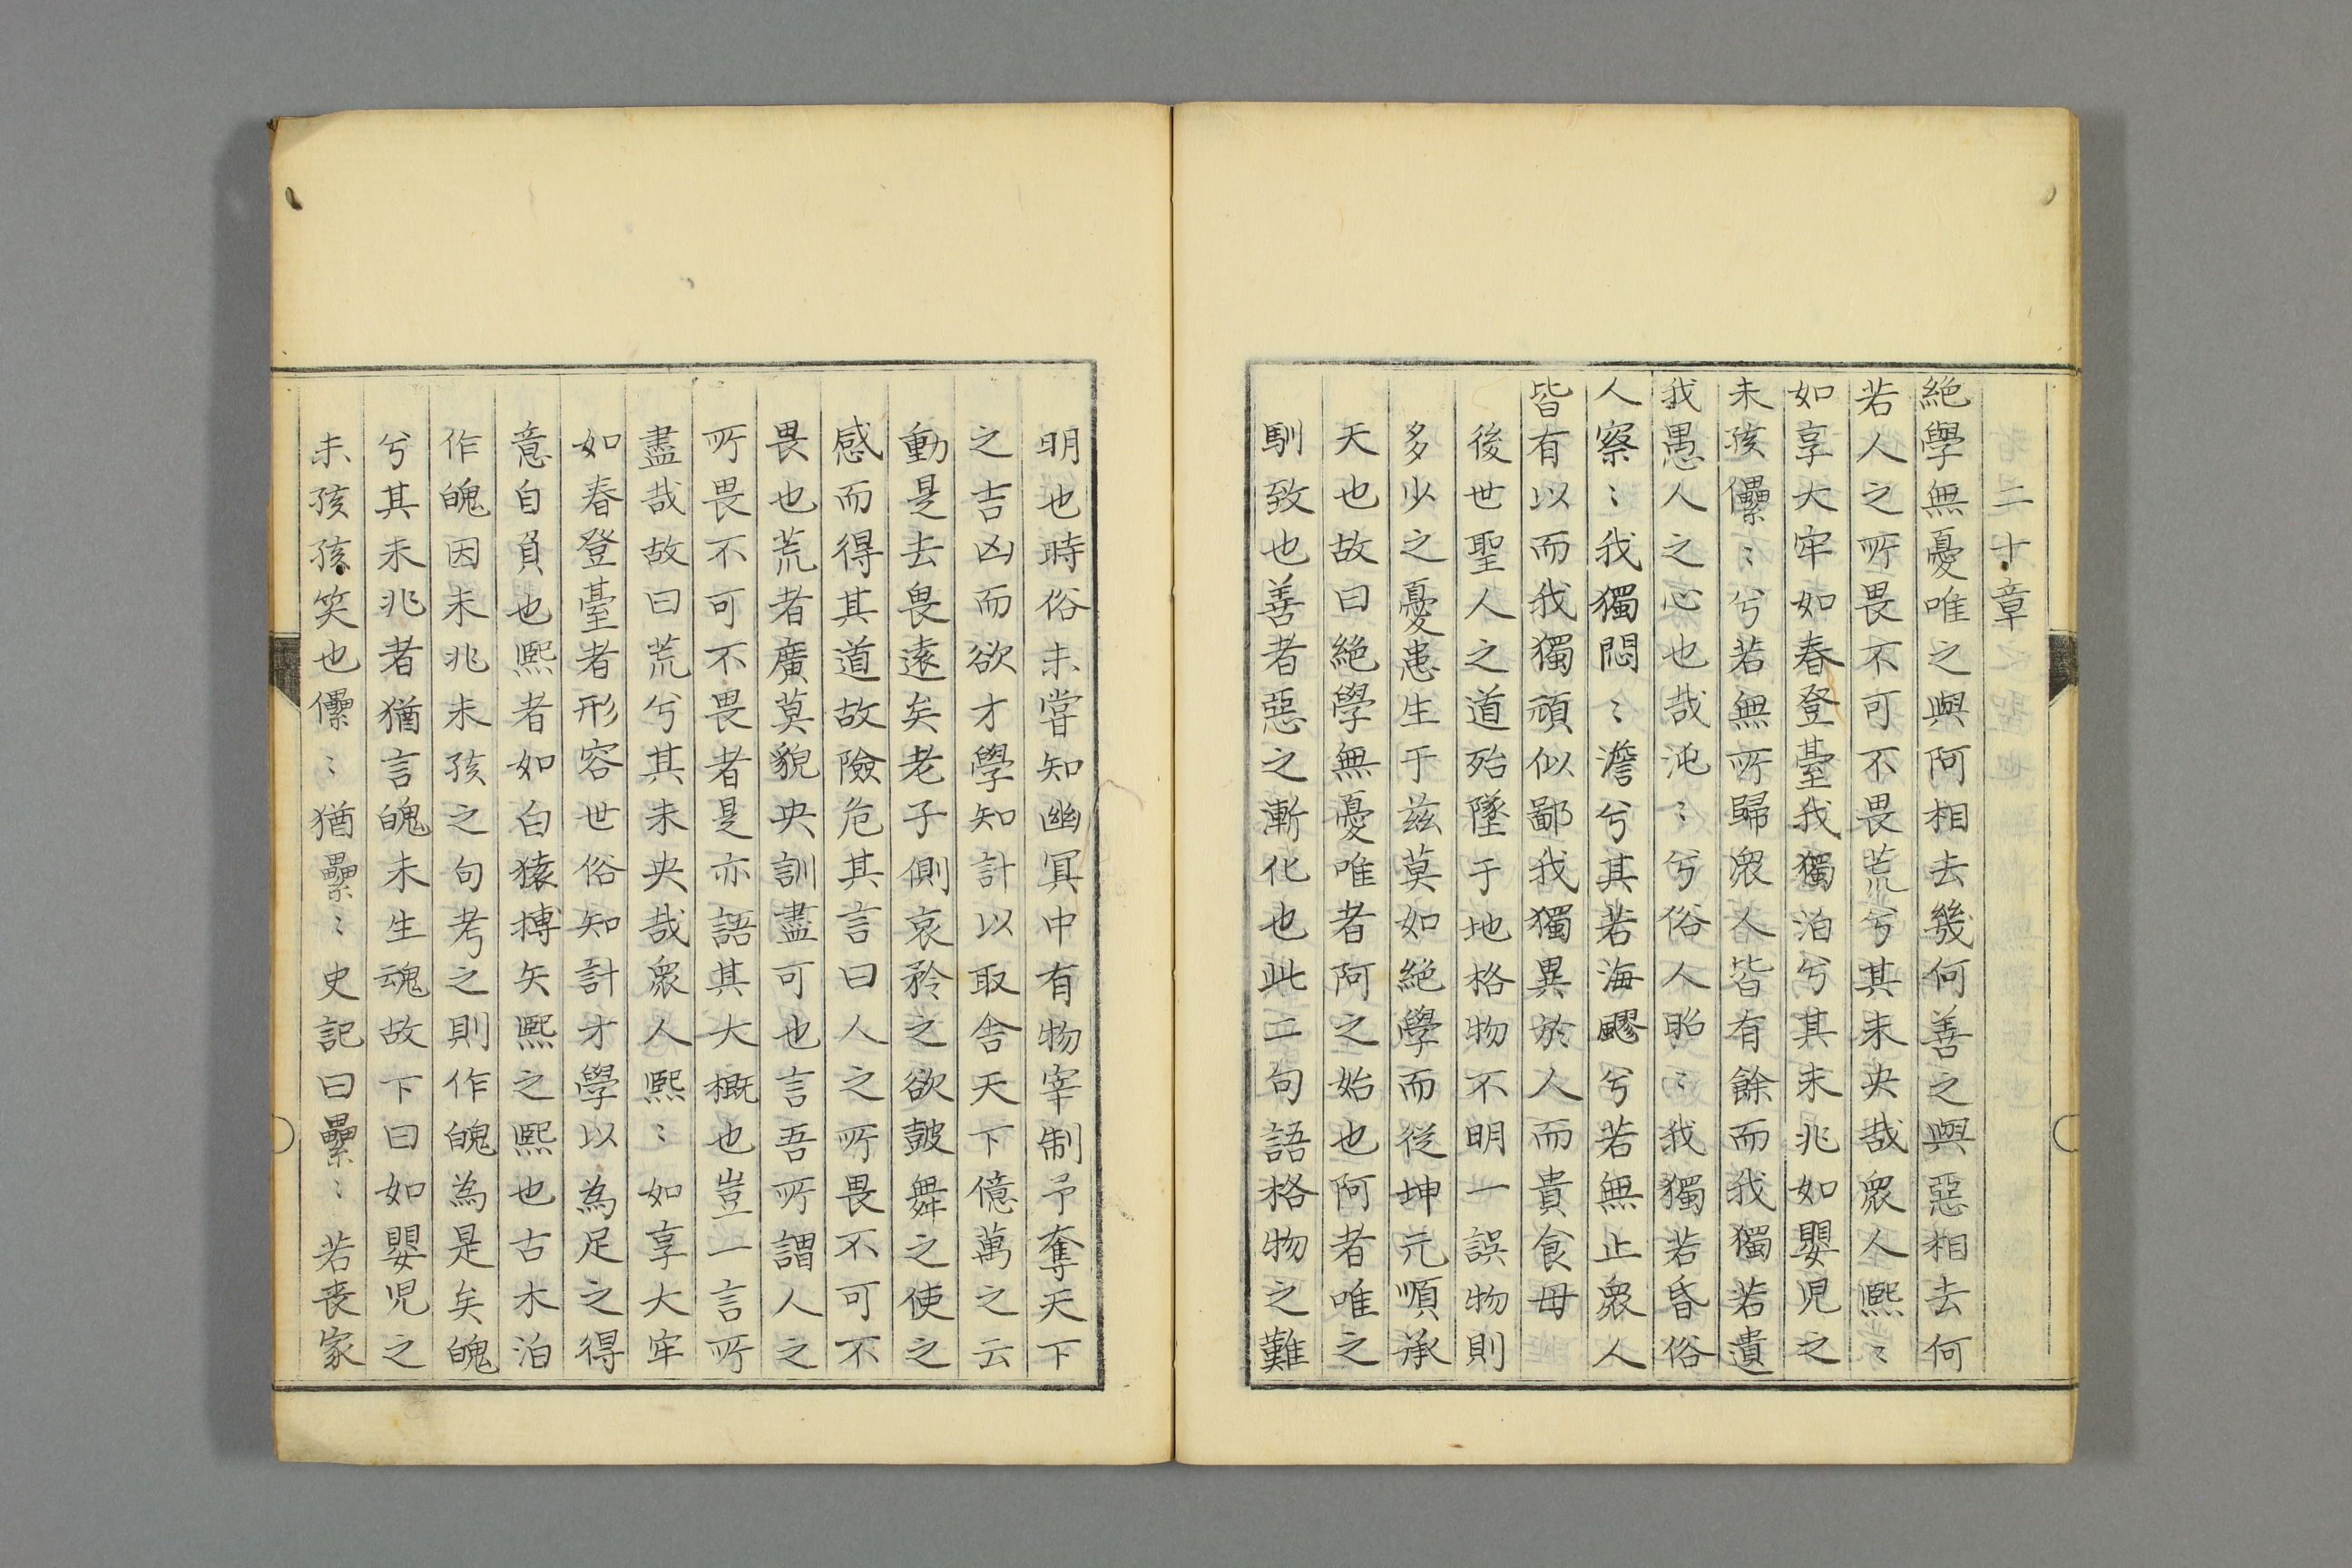 二十章
絶學無憂唯之與阿相去幾何善之與惡相去何
若人之所畏不可不畏荒兮其未央哉衆人熙〻
如享大牢如春登臺我獨泊兮其未兆如嬰児之
未孩儽〻兮若無所歸衆人皆有餘而我獨若遺
我愚人之心也哉沌〻兮俗人昭〻我獨若昏俗
人察〻我獨悶〻澹兮其若海飂兮若無止衆人
皆有以而我獨頑似鄙我獨異於人而貴食母
後世聖人之道殆墜于地格物不明一誤物則
多少之憂患生于茲莫如絶學而從坤元順承
天也故曰絶學無憂唯者阿之始也阿者唯之
馴致也善者惡之漸化也此二句語格物之難
明也時俗未嘗知幽冥中有物宰制予奪天下
之吉凶而欲才學知計以取舎天下億萬之云
動是去畏遠矣老子側哀矜之欲皷舞之使之
感而得其道故險危其言曰人之所畏不可不
畏也荒者廣莫貌央訓盡可也言吾所謂人之
所畏不可不畏者是亦語其大概也豈一言所
盡哉故曰荒兮其未央哉衆人熙〻如享大牢
如春登臺者形容世俗知計才學以為足之得
意自負也熙者如白猿搏矢熙之熙也古木泊
作魄因未兆未孩之句考之則作魄為是矣魄
兮其未兆者猶言魄未生魂故下曰如嬰児之
未孩孩笑也儽〻猶纍〻史記曰纍〻若喪家